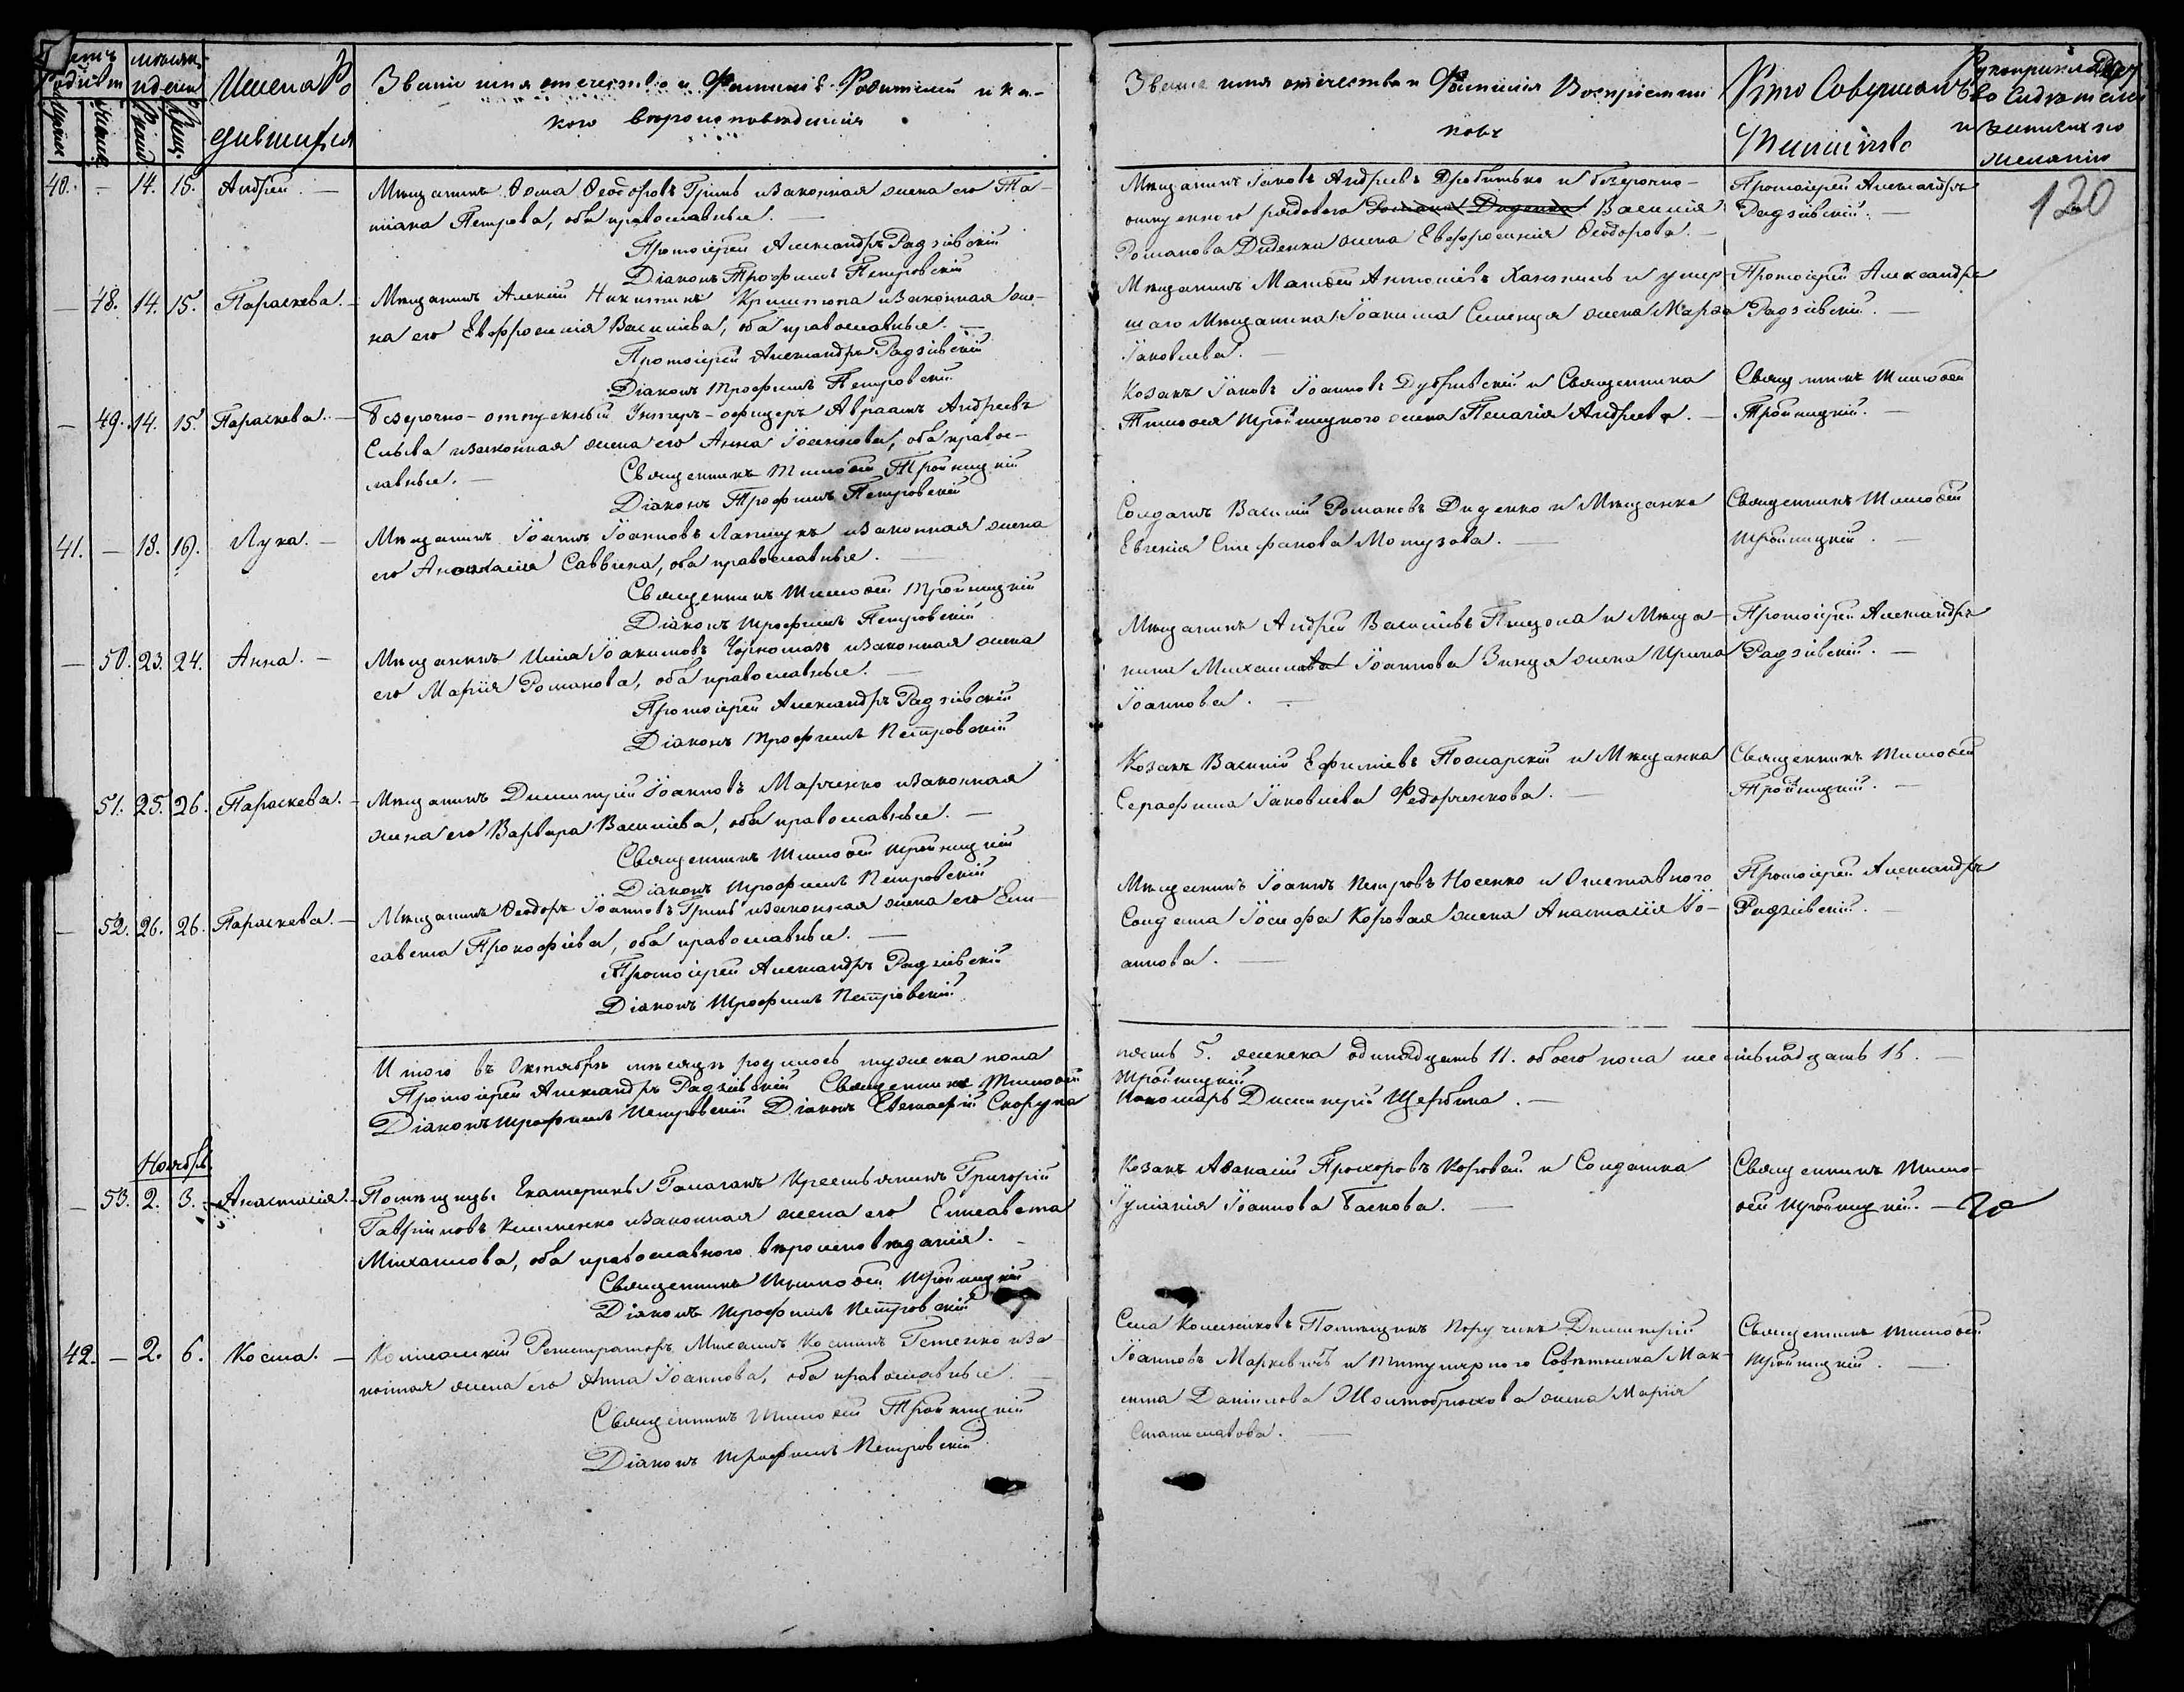 Счетъ Родивш. Мѣсяцъ и день Имена Ро-
дившихся
Званіе имя отечество и Фамилія Родителей и ка-
кого вѣроисповѣданія
Званіе имя отечество и Фамилія Воспріемни-
ковъ
Кто Совершалъ
Таинство
Рукоприкладст
во Свидѣтелей
и записи по
желанію
120
40. — 14. 15. Андрей. —
Мѣщанинъ Ѳома Ѳеодоровъ Гринь и законная жена его Та-
тіана Петрова, оба православные. —
Протоіерей Александръ Радзіевскій
Діаконъ Трофимъ Петровскій
Мѣщанинъ Іаковъ Андреевъ Дробитько и безсрочно-
отпускного рядового Романа Диденка Василія
Романова Диденка жена Евфросинія Ѳеодорова. —
Протоіерей Александръ
Радзіевскій. —
— 48. 14. 15. Параскева. —
Мѣщанинъ Алексій Никитинъ и законная же-
на его Евфросинія Василіева, оба православные. —
Протоіерей Александръ Радзіевскій
Діаконъ Трофимъ Петровскій
Мѣщанинъ Матѳей Антоніевъ и умер-
шаго Мѣщанина Іоакима Семенця жена Марѳа
Іаковлева. —
Протоіерей Александръ
Радзіевскій. —
— 49. 14. 15. Параскева. —
Безсрочно-отпускный Унтеръ-офицеръ Авраамъ Андреевъ
и законная жена его Анна Іоаннова, оба право-
славные. —
Священникъ Тимоѳей Тройницкій
Діаконъ Трофимъ Петровскій
Козакъ Іаковъ Іоанновъ и Священника
Тимоѳея Тройницкого жена Пелагія Андреева. —
Священникъ Тимоѳей
Тройницкій. —
41. — 18. 19. Лука. —
Мѣщанинъ Іоаннъ Іоанновъ Лапшукъ и законная жена
его Анастасія Саввина, оба православные. —
Священникъ Тимоѳей Тройницкій
Діаконъ Трофимъ Петровскій
Солдатъ Василій Романовъ Диденко и Мѣщанка
Евгенія Стефанова Мотузова. —
Священникъ Тимоѳей
Тройницкій. —
— 50. 23. 24. Анна. —
Мѣщанинъ Илія Іоакимовъ Чорномазъ и законная жена
его Марія Романова, оба православные. —
Протоіерей Александръ Радзіевскій
Діаконъ Трофимъ Петровскій
Мѣщанинъ Андрей Василіевъ и Мѣща-
нина Михаила Іоаннова жена Ирина
Іоаннова. —
Протоіерей Александръ
Радзіевскій. —
51. 25. 26. Параскева. —
Мѣщанинъ Димитрій Іоанновъ Марченко и законная
жена его Варвара Василіева, оба православные. —
Священникъ Тимоѳей Тройницкій
Діаконъ Трофимъ Петровскій
Козакъ Василій Ефиміевъ Пожарскій и Мѣщанка
Серафима Іаковлева Федорченкова. —
Священникъ Тимоѳей
Тройницкій. —
— 52. 26. 26. Параскева. —
Мѣщанинъ Ѳеодоръ Іоанновъ Гринь и законная жена его Ели-
савета Прокофіева, оба православные. —
Протоіерей Александръ Радзіевскій
Діаконъ Трофимъ Петровскій
Мѣщанинъ Іоаннъ Петровъ Носенко и Отставного
Солдата Іосифа Коровая жена Анастасія Іо-
аннова. —
Протоіерей Александръ
Радзіевскій. —
Итого въ Октябрѣ мѣсяцѣ родилось мужеска пола
пять 5. женска одинадцать 11. обоего пола шестьнадцать 16. —
Протоіерей Александръ Радзіевскій Священникъ Тимоѳей
Тройницкій
Діаконъ Трофимъ Петровскій Діаконъ Евстафій Скорупа
Пономарь Димитрій Щербина. —
Ноябрь.
— 53. 2. 3. Анастасія. —
Помѣщицы Екатерины Галаганъ Крестьянинъ Григорій
Гавріиловъ Клименко и законная жена его Елисавета
Михаилова, оба православного вѣроисповѣданія. —
Священникъ Тимоѳей Тройницкій
Діаконъ Трофимъ Петровскій
Козакъ Аѳанасій Прохоровъ Коровай и Солдатка
Іуліанія Іоаннова Баскова. —
Священникъ Тимо-
ѳей Тройницкій. —
42. — 2. 6. Косма. —
Коллежскій Регистраторъ Михаилъ Косминъ Гетенко и за-
конная жена его Анна Іоаннова, оба православные. —
Священникъ Тимоѳей Тройницкій
Діаконъ Трофимъ Петровскій
Села Помѣщикъ Поручикъ Димитрій
Іоанновъ Маркевичъ и Титулярного Совѣтника Мак-
сима Даніилова Жолтобрюхова жена Марія
Станиславова. —
Священникъ Тимоѳей
Тройницкій. —